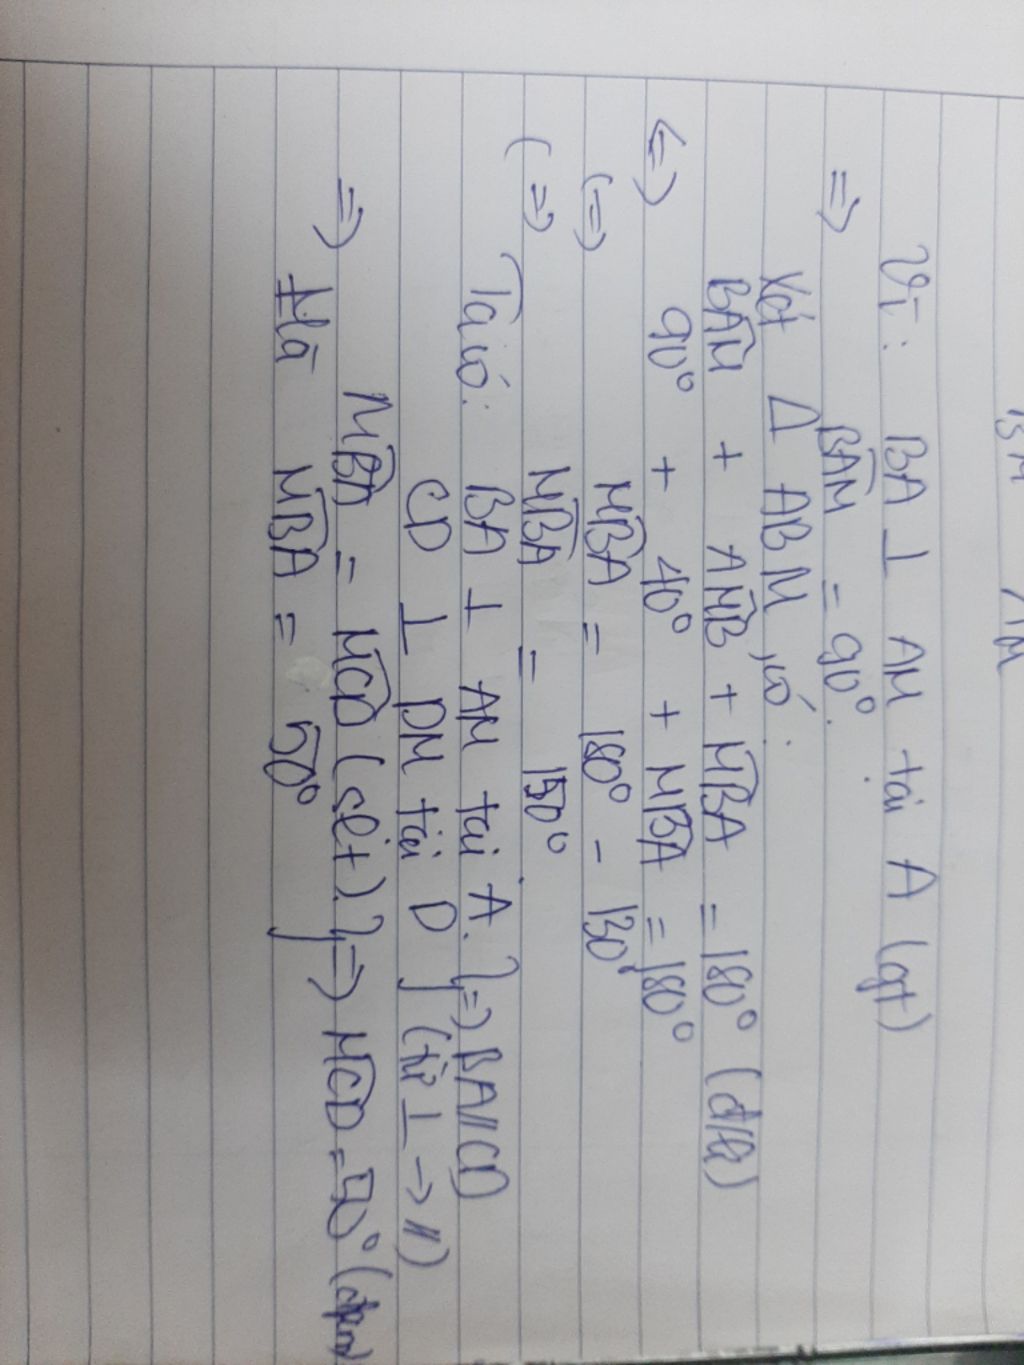 Vì : BA ⊥ AM tại A (gt)
=> BAM = 90°.
Xét Δ ABM, có :
BAM + AMB + MBA = 180° (đ/lí)
<=> 90° + 40° + MBA = 180°
(=) MBA = 180° - 130°
(=) MBA = 50°
Ta có : BA ⊥ AM tại A. } => BA // CD
CD ⊥ DM tại D } (từ ⊥ -> //)
=> MBA = MCD (slt). } => MCD = 50° (đpcm)
Mà MBA = 50°